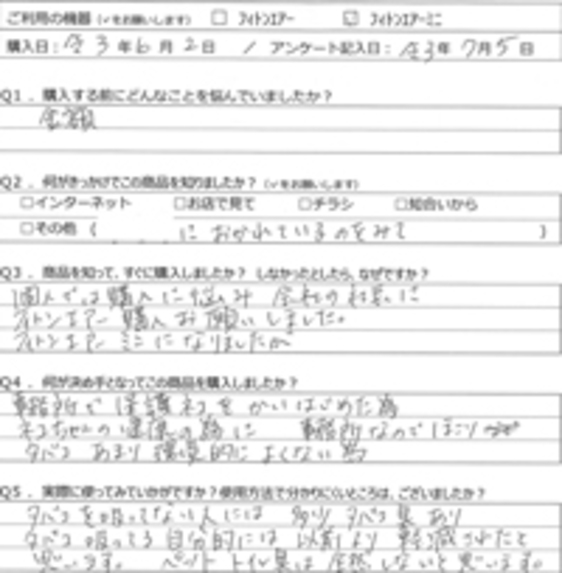 ご利用の機器 (✓をお願いします) □ フィトンエアー ☑ フィトンエアーミニ
購入日: 令3年6月2日 / アンケート記入日: 令3年7月5日
Q1. 購入する前にどんなことを悩んでいましたか?
金額
Q2. 何がきっかけでこの商品を知りましたか? (✓をお願いします)
□インターネット □お店で見て □チラシ □知合いから
□その他 ( におかれているのをみて )
Q3. 商品を知って、すぐに購入しましたか? しなかったとしたら、なぜですか?
個人では購入に悩み 会社の社長に
フィトンエアー購入お願いしました。
フィトンエアーミニになりましたが
Q4. 何が決め手となってこの商品を購入しましたか?
事務所で保護ネコをかいはじめた為
ネコちゃんの健康の為に 事務所なのでほこり
タバコ あまり環境的によくない為
Q5. 実際に使ってみていかがですか?使用方法で分かりにくいところは、ございましたか?
タバコを吸ってない人には タバコ臭あり
タバコ吸ってる自分的には以前より軽減されたと
思います。 ペットトイレ臭は全然しないと思います。